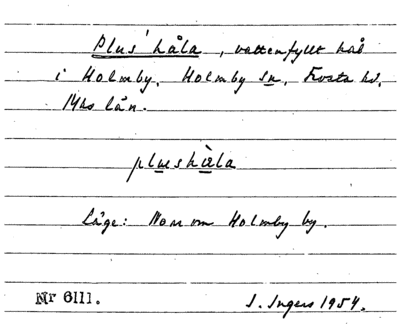 Plus' håla, vattenfyllt hål
i Holmby. Holmby sn, Frosta hd.
Mhs län.
plushåla
Läge: Norr om Holmby by.
Nr 6111. I. Ingers 1954.